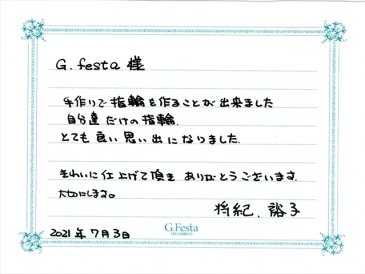 G.festa 様
手作りで指輪を作ることが出来ました
自分達だけの指輪.
とても良い思い出になりました.
きれいに仕上げて頂き ありがとうございます.
大切にします。
将紀. 裕子
G.Festa
2021年7月3日